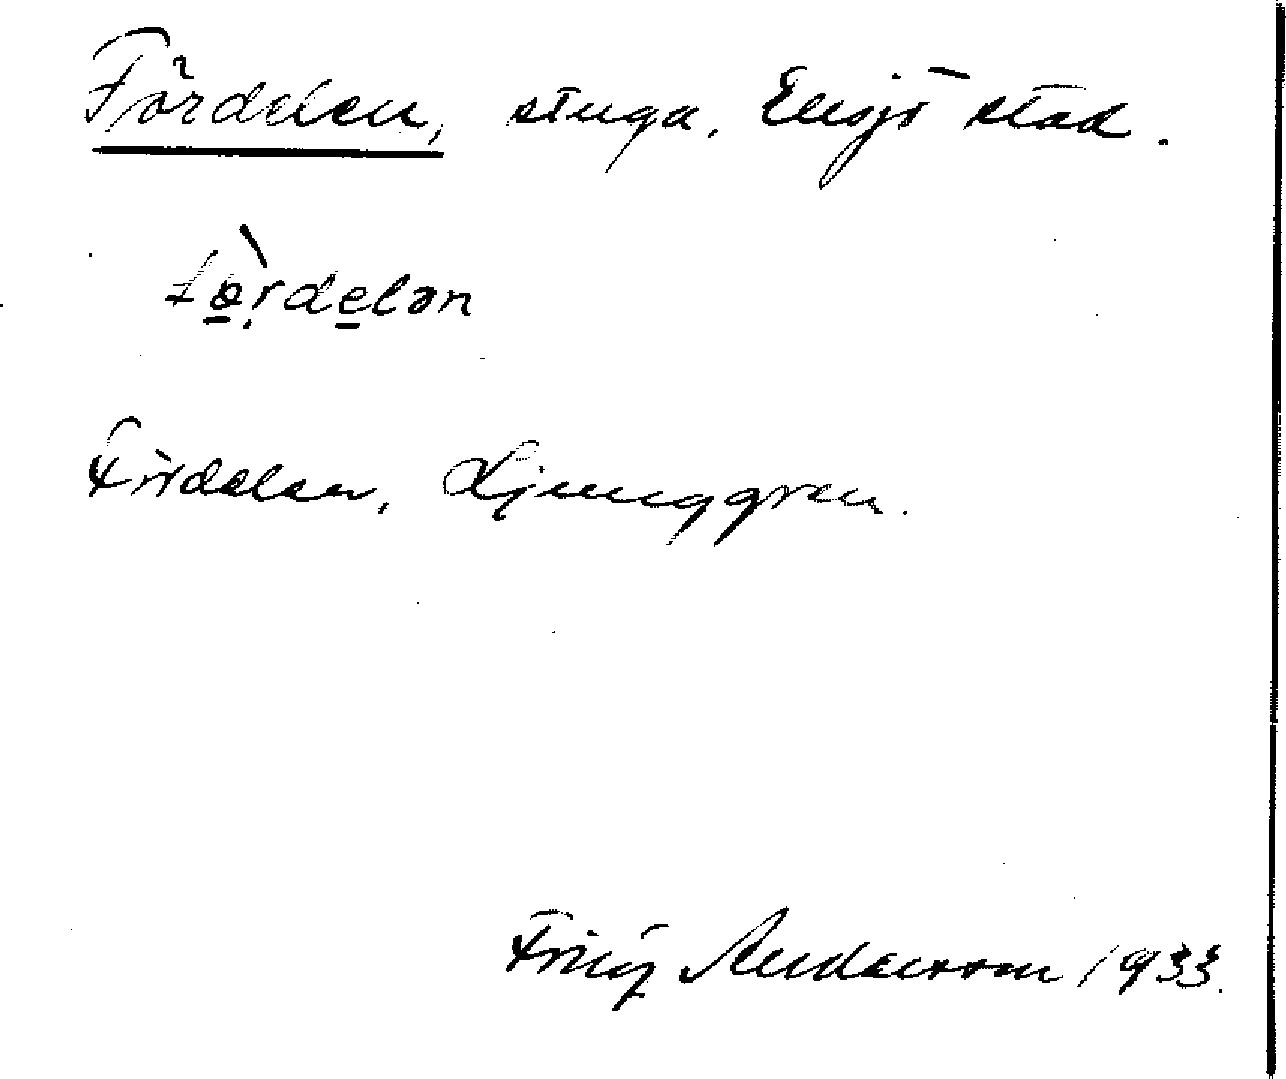 Fördelen, stuga, Eksjö stad.
fördelən
Fördelen, Ljunggren.
Fritz Andersson 1933.